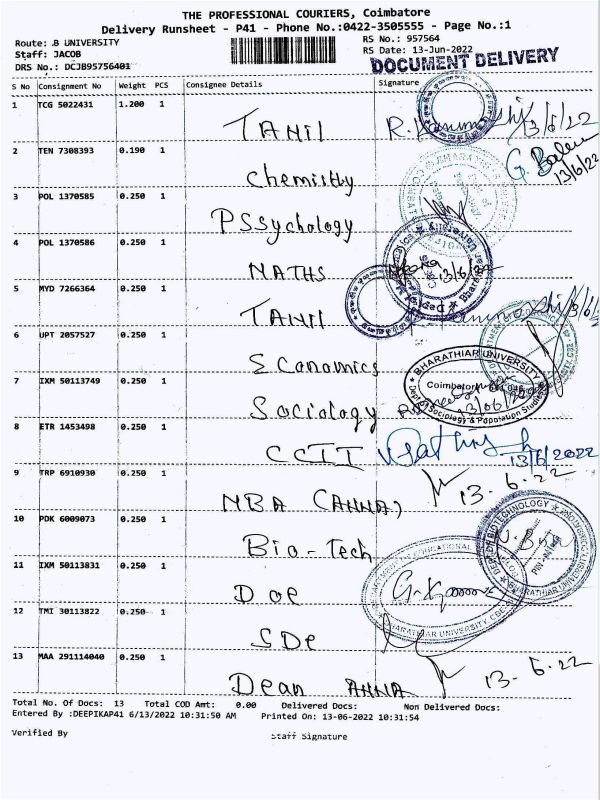 THE PROFESSIONAL COURIERS, Coimbatore
Delivery Runsheet - P41 - Phone No.:0422-3505555 - Page No.:1
Route: .B UNIVERSITY
RS No.: 957564
Staff: JACOB
RS Date: 13-Jun-2022
DRS No.: DCJB95756401
DOCUMENT DELIVERY
S No Consignment No Weight PCS Consignee Details Signature
1 TCG 5022431 1.200 1
TAMIL 13/6/22
2 TEN 7308393 0.190 1
13/6/22
Chemistry
3 POL 1370585 0.250 1
PSSychology
4 POL 1370586 0.250 1
MATHS 13/6/22
5 MYD 7266364 0.250 1
TAMIL
6 UPT 2057527 0.250 1
Economics
BHARATHIAR UNIVERSITY
7 IXM 50113749 0.250 1
Coimbatore
Dept of Sociology & Population Studies
Sociology 13/06/2022
8 ETR 1453498 0.250 1
CCII 13/6/2022
9 TRP 6910930 0.250 1
13.6.22
MBA (ANNA)
10 PDK 6009073 0.250 1
Bio-Tech
11 IXM 50113831 0.250 1
Doe
BHARATHIAR UNIVERSITY
12 TMI 30113822 0.250 1
SDe
13 MAA 291114040 0.250 1
Dean ANNA 13-6.22
Total No. Of Docs: 13 Total COD Amt: 0.00 Delivered Docs: Non Delivered Docs:
Entered By :DEEPIKAP41 6/13/2022 10:31:50 AM Printed On: 13-06-2022 10:31:54
Verified By Staff Signature